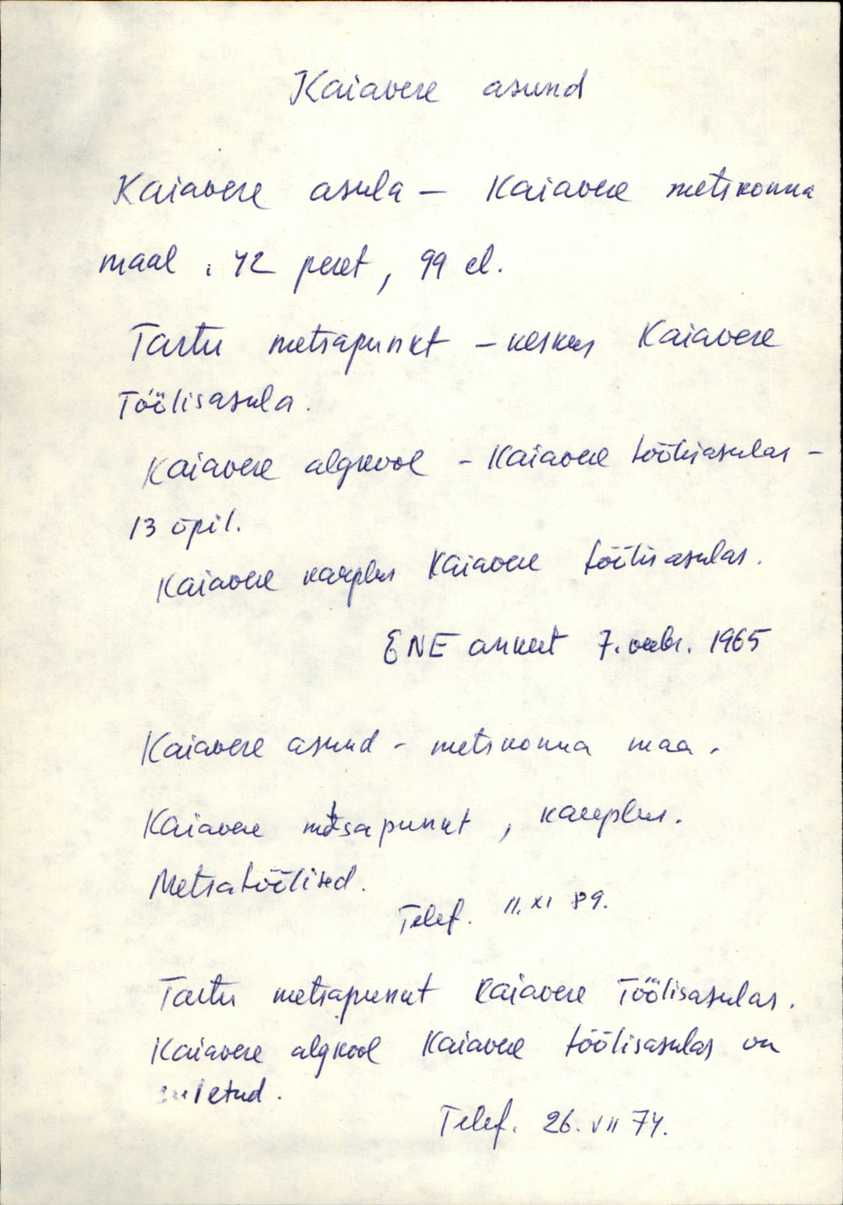 Kaiavere asund
Kaiavere asula – Kaiavere metskonna
maal, 42 peret, 99 el.
Tartu metsapunkt – keskus Kaiavere
Töölisasula.
Kaiavere algkool – Kaiavere töölisasulas –
13 õpil.
Kaiavere kauplus Kaiavere töölisasulas.
ENE ankeet 7. veebr. 1965
Kaiavere asund – metskonna maa.
Kaiavere metsapunkt, kauplus.
Metsatöölised.
Telef. 11. XI 89.
Tartu metsapunkt Kaiavere Töölisasulas.
Kaiavere algkool Kaiavere töölisasulas on
suletud.
Telef. 26. VII 74.